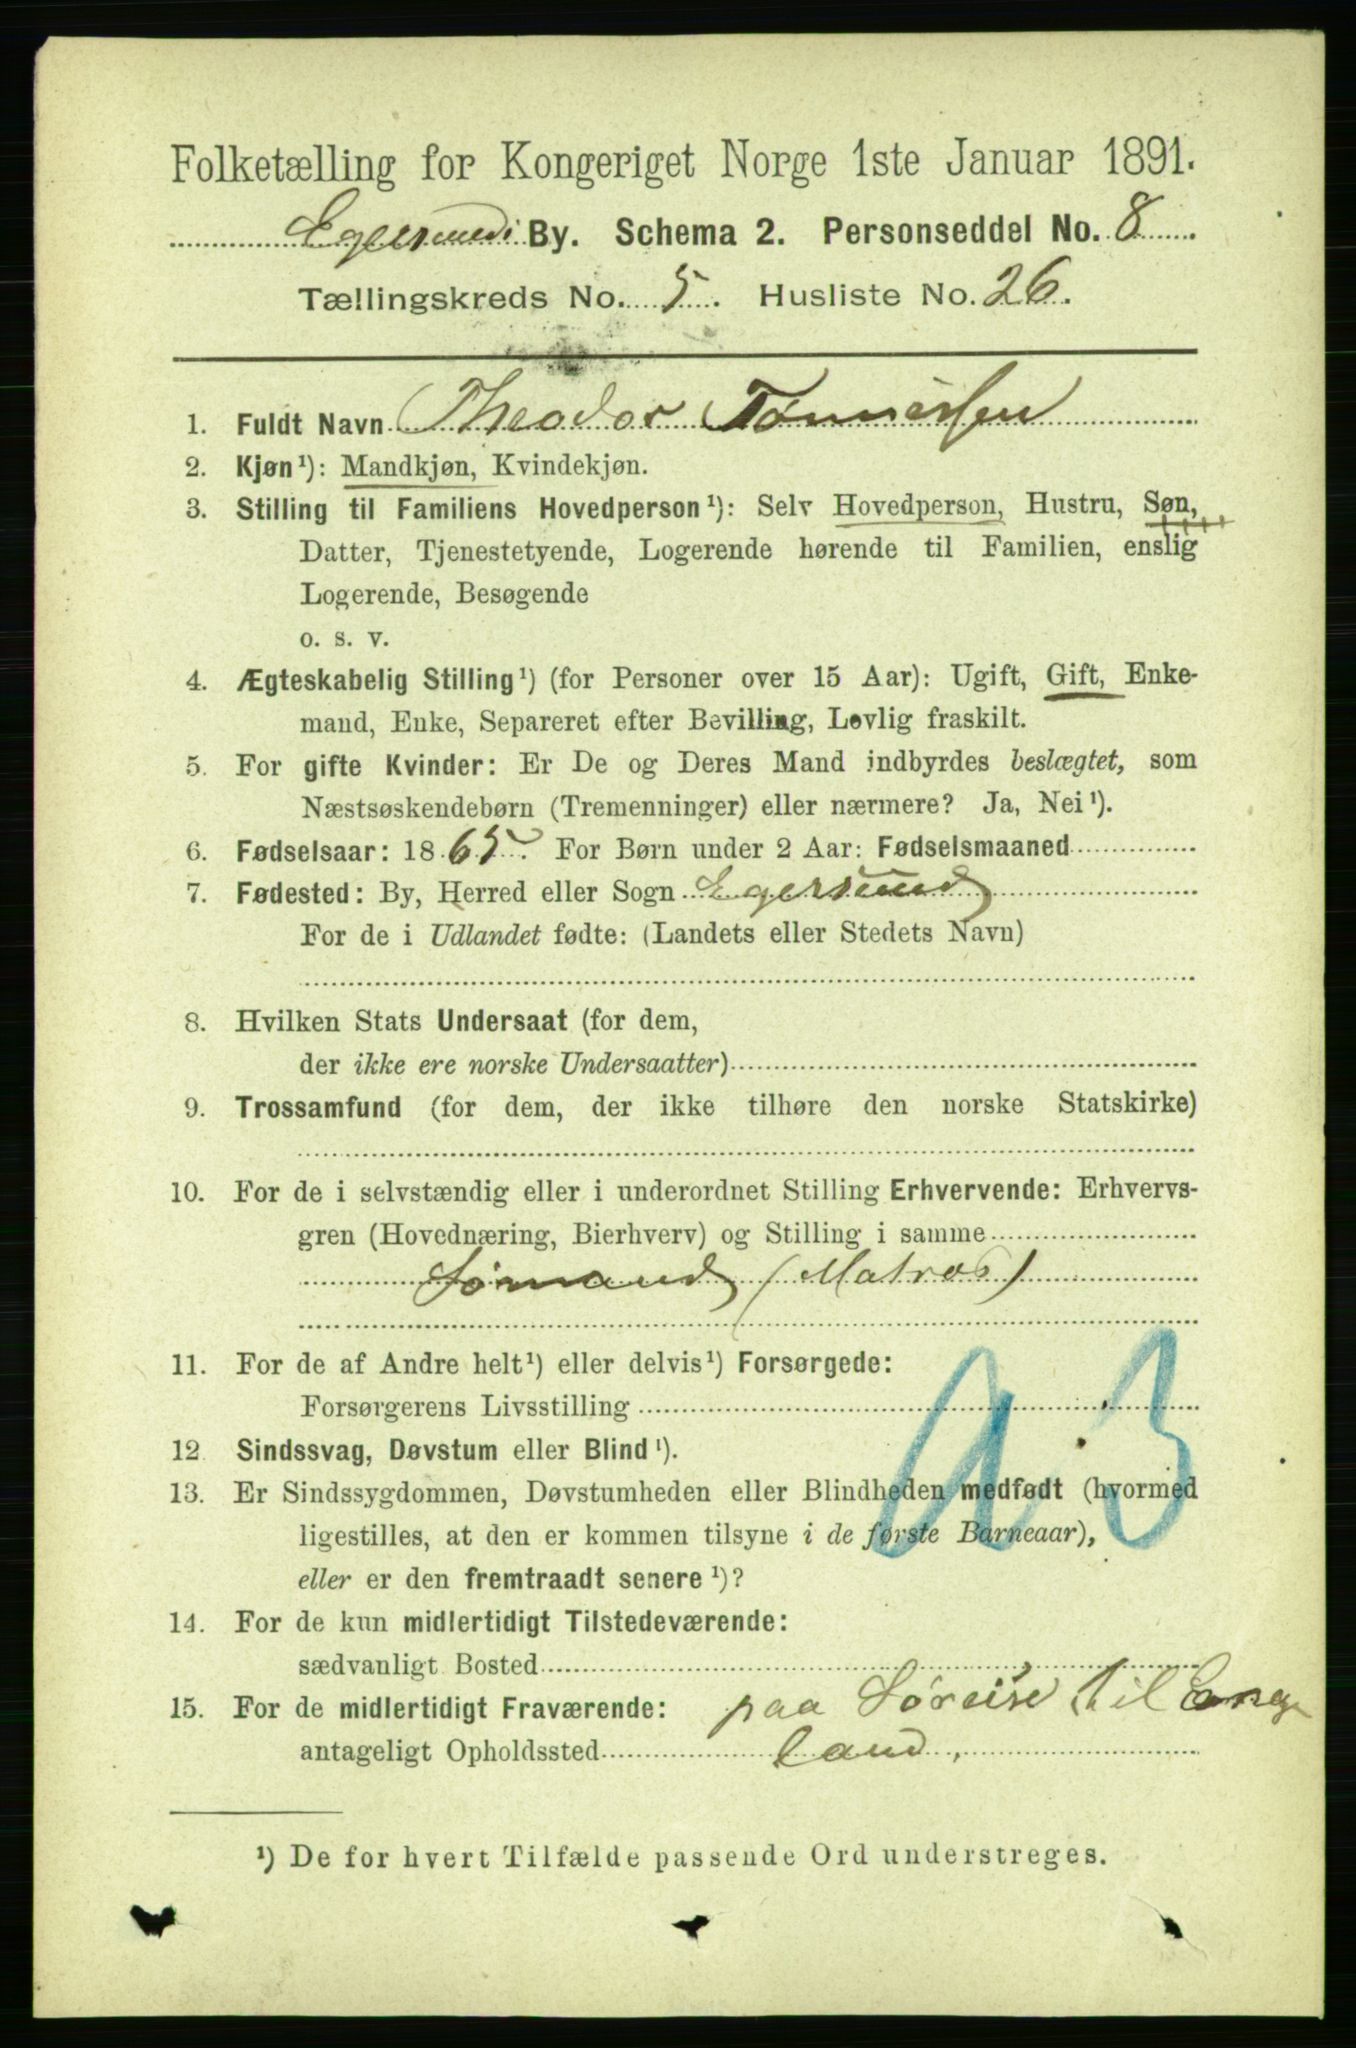 Folketælling for Kongeriget Norge 1ste Januar 1891.
Egersund By. Schema 2. Personseddel No. 8
Tællingskreds No. 5. Husliste No. 26.
1. Fuldt Navn Theodor Tønnessen
2. Kjøn¹): Mandkjøn, Kvindekjøn.
3. Stilling til Familiens Hovedperson¹): Selv Hovedperson, Hustru, Søn,
Datter, Tjenestetyende, Logerende hørende til Familien, enslig
Logerende, Besøgende
o. s. v.
4. Ægteskabelig Stilling¹) (for Personer over 15 Aar): Ugift, Gift, Enke-
mand, Enke, Separeret efter Bevilling, Lovlig fraskilt.
5. For gifte Kvinder: Er De og Deres Mand indbyrdes beslægtet, som
Næstsøskendebørn (Tremenninger) eller nærmere? Ja, Nei¹).
6. Fødselsaar: 1865. For Børn under 2 Aar: Fødselsmaaned
7. Fødested: By, Herred eller Sogn Egersund
For de i Udlandet fødte: (Landets eller Stedets Navn)
8. Hvilken Stats Undersaat (for dem,
der ikke ere norske Undersaatter)
9. Trossamfund (for dem, der ikke tilhøre den norske Statskirke)
10. For de i selvstændig eller i underordnet Stilling Erhvervende: Erhvervs-
gren (Hovednæring, Bierhverv) og Stilling i samme
Sømand (Matros)
11. For de af Andre helt¹) eller delvis¹) Forsørgede:
Forsørgerens Livsstilling
12. Sindssvag, Døvstum eller Blind¹).
13. Er Sindssygdommen, Døvstumheden eller Blindheden medfødt (hvormed
ligestilles, at den er kommen tilsyne i de første Barneaar),
eller er den fremtraadt senere¹)?
14. For de kun midlertidigt Tilstedeværende:
sædvanligt Bosted
15. For de midlertidigt Fraværende: paa Søreise til Eng
antageligt Opholdssted land.
¹) De for hvert Tilfælde passende Ord understreges.